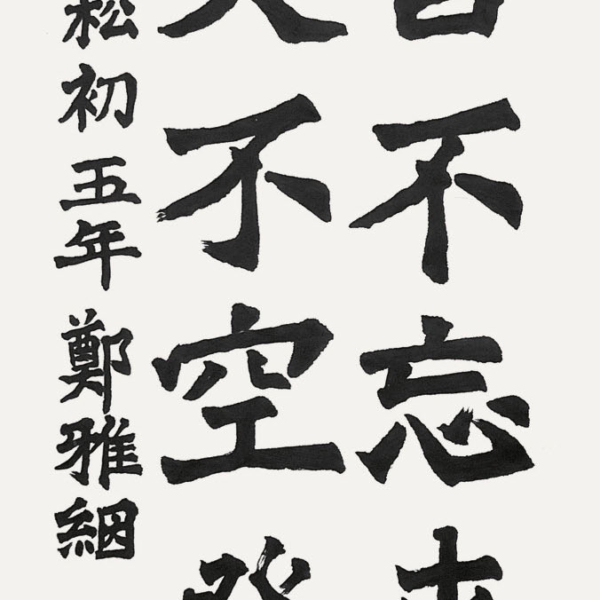 不忘
不空
初五年鄭雅絪